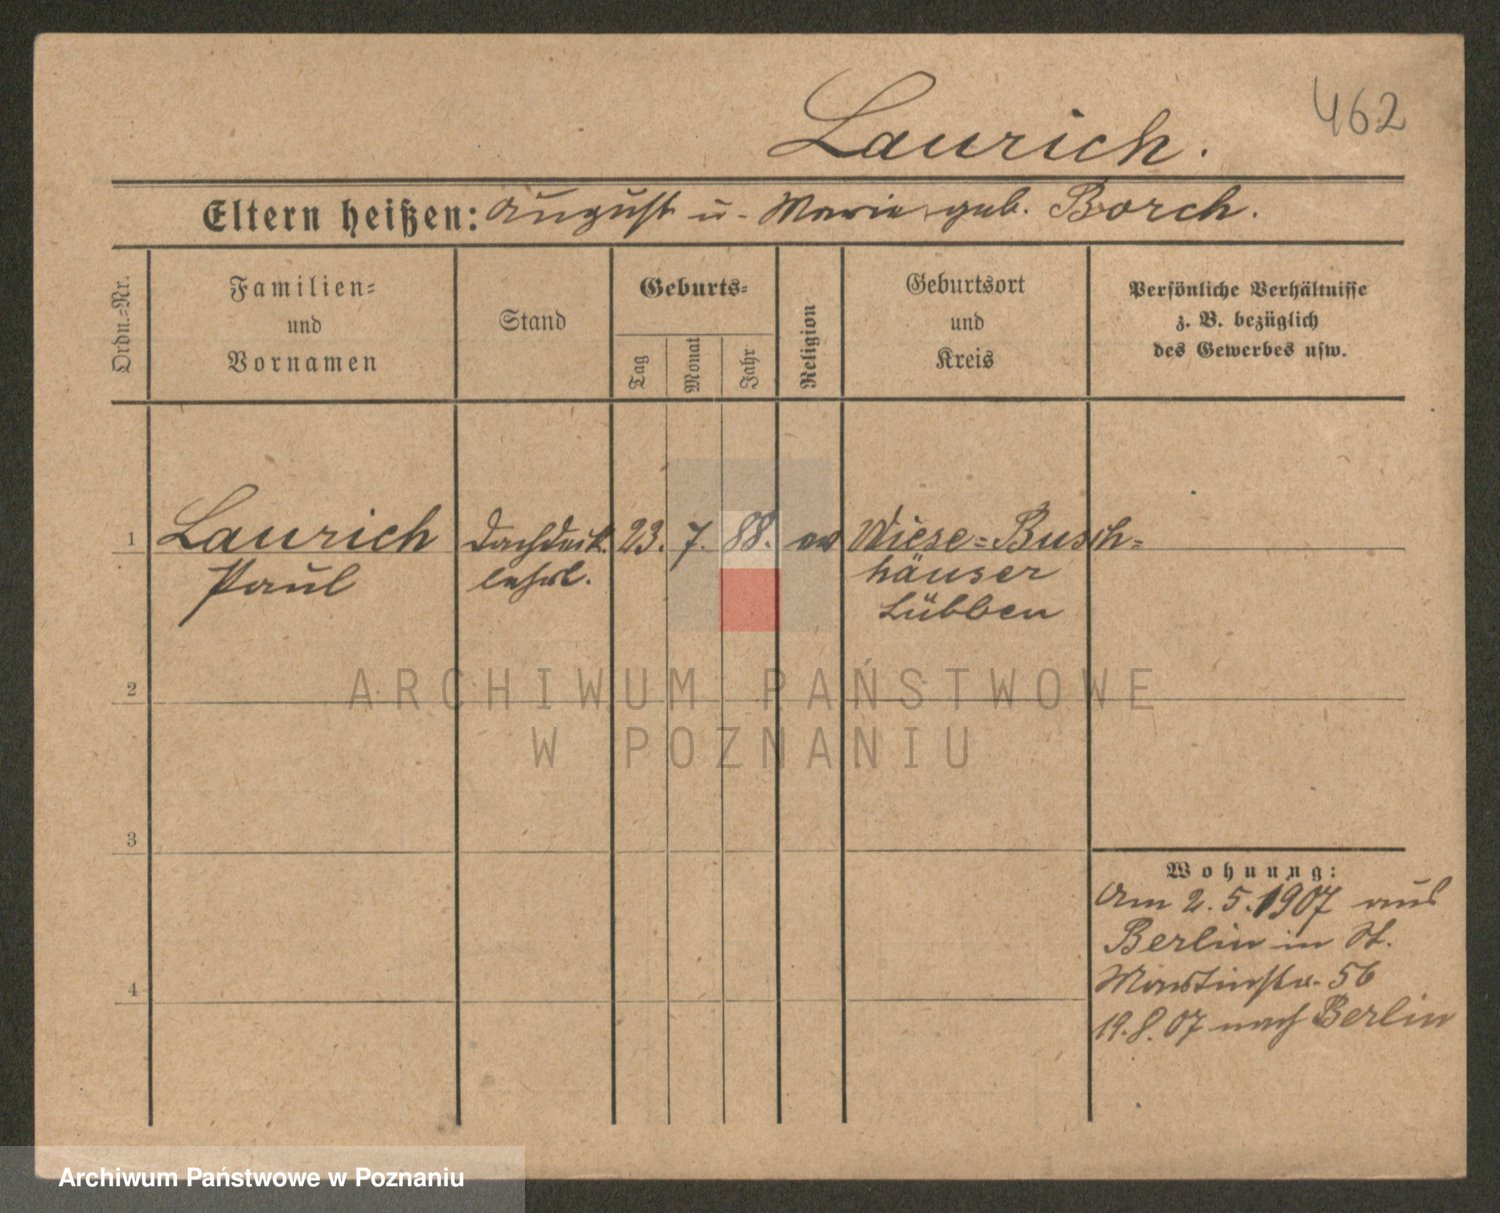 462
Laurich.
Eltern heißen: August u. Marie geb. Borch.
Ordn.=Nr.
Familien=
und
Vornamen
Stand
Geburts=
Tag
Monat
Jahr
Religion
Geburtsort
und
Kreis
Persönliche Verhältnisse
z. B. bezüglich
des Gewerbes usw.
1 Laurich Dachdeck. 23. 7. 88. ev Wiese=Busch=
Paul lehrl. häuser
Lübben
2
3
4
Wohnung:
Am 2. 5. 1907 aus
Berlin in St.
Martinstr. 56
19. 8. 07 nach Berlin
ARCHIWUM PAŃSTWOWE
W POZNANIU
Archiwum Państwowe w Poznaniu